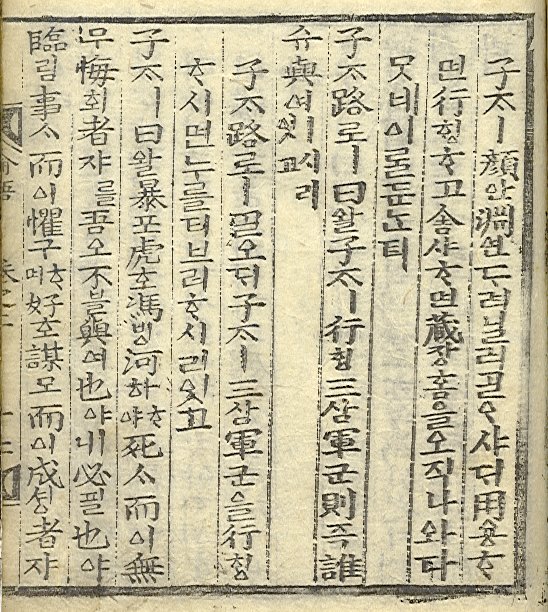 子ᄌᆞㅣ顔안淵연ᄃᆞ려닐러ᄀᆞᆯᄋᆞ샤ᄃᆡ用용ᄒᆞ
면行ᄒᆡᆼᄒᆞ고舍샤ᄒᆞ면藏장홈을오직나와다
못네이롤둔ᄂᆞ뎌
子ᄌᆞ路로ㅣ曰왈子ᄌᆞㅣ行ᄒᆡᆼ三삼軍군則즉誰
슈與여ㅣ시리잇고
子ᄌᆞ路로ㅣᄀᆞᆯ오ᄃᆡ子ᄌᆞㅣ三삼軍군을行ᄒᆡᆼ
ᄒᆞ시면누를더브러ᄒᆞ시리잇고
子ᄌᆞㅣ曰왈暴포虎호馮빙河하ᄒᆞ야死ᄉᆞ而이無
무悔회者쟈를吾오不블與여也야ㅣ니必필也야
臨림事ᄉᆞ而이懼구ᄒᆞ며好호謀모而이成셩者쟈